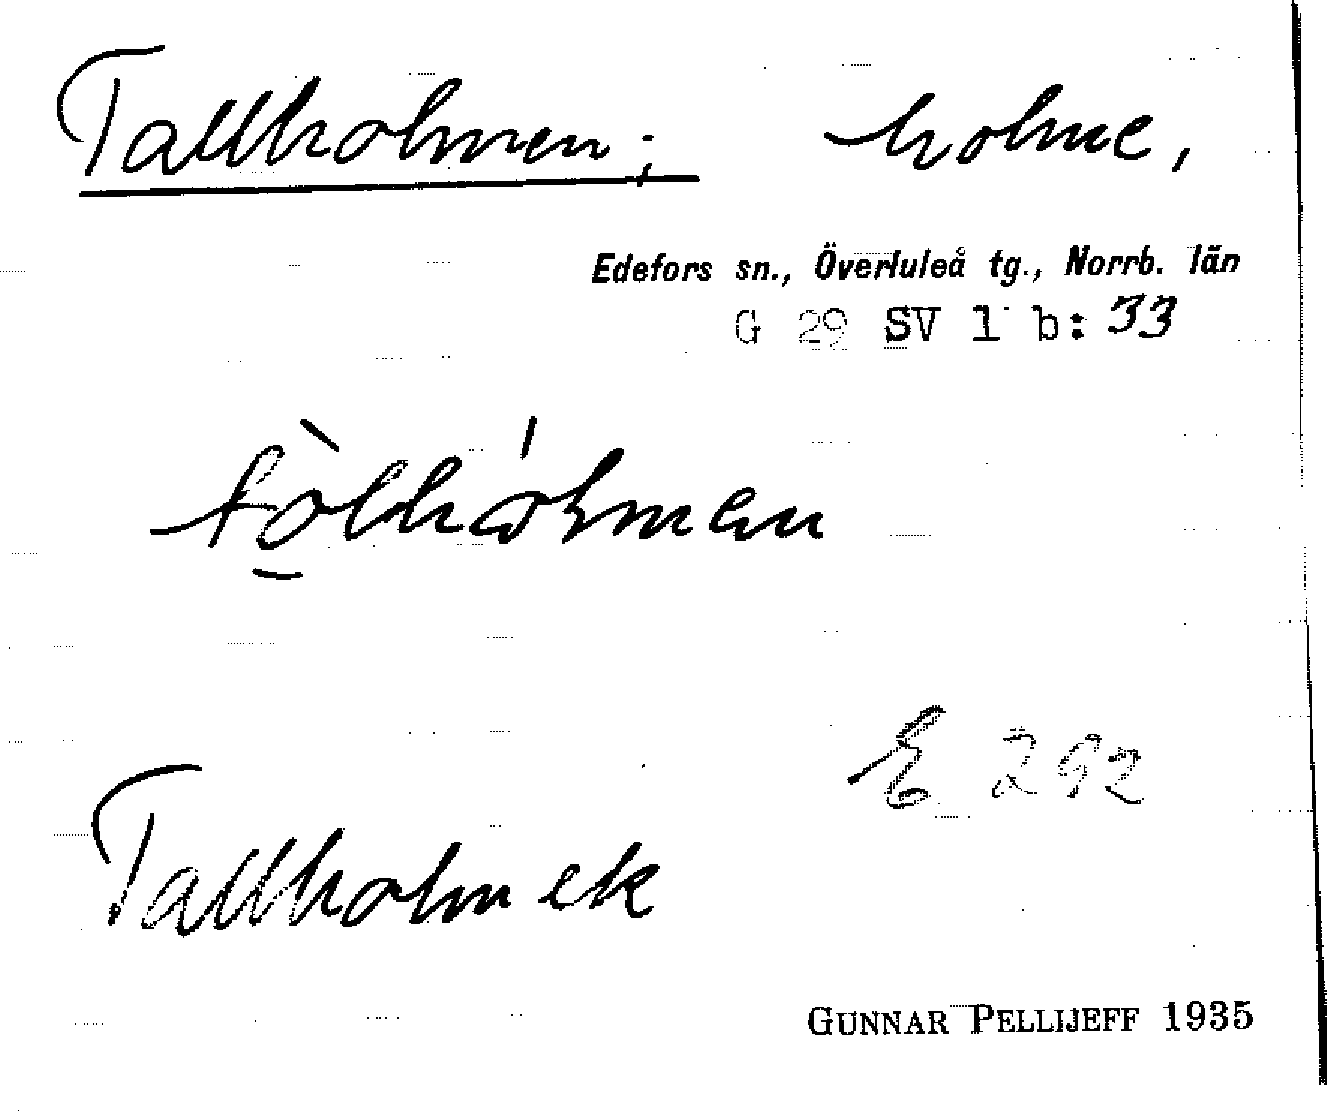 Tallholmen; holme,
Edefors sn., Överluleå tg., Norrb. län
G 29 SV 1 b: 33
E 292
Tallholm ek
GUNNAR PELLIJEFF 1935